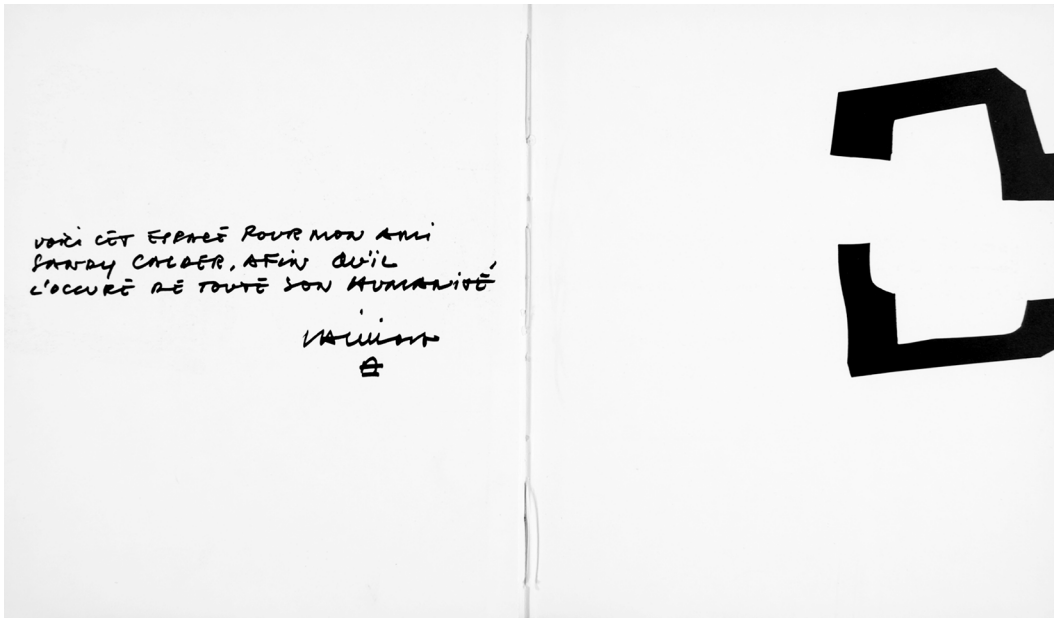 VOICI CET ESPACE POUR MON AMI
SANDY CALDER, AFIN QU'IL
L'OCCUPE DE TOUTE SON HUMANITÉ